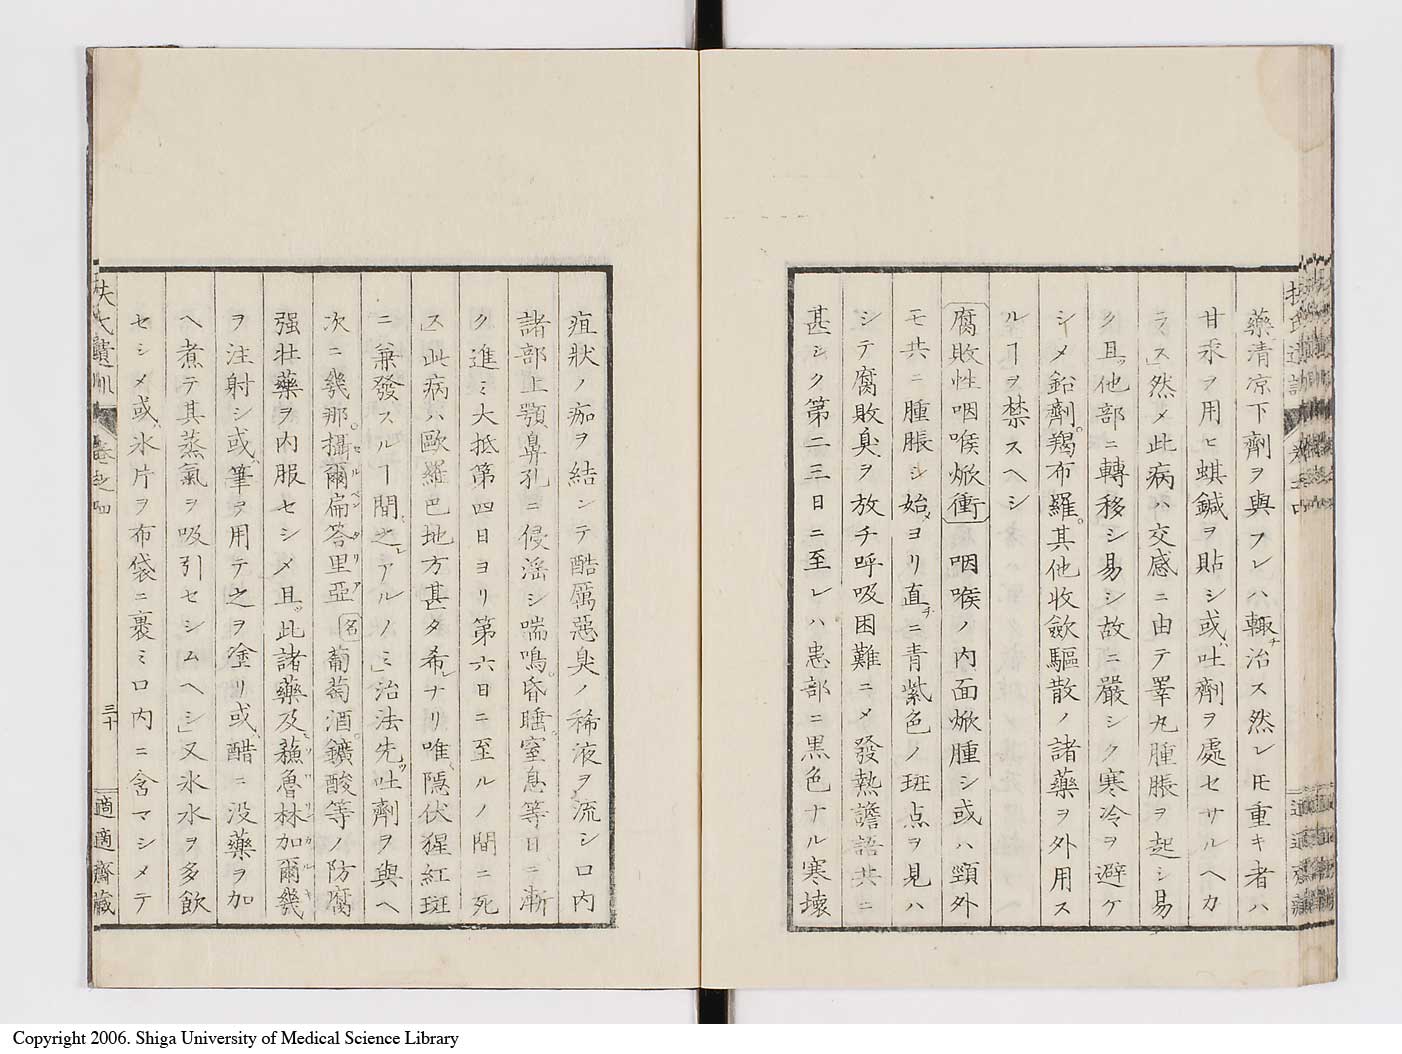 藥清凉下劑ヲ與フレハ輙チ治ス然レ𪜈重キ者ハ
甘汞ヲ用ヒ蜞鍼ヲ貼シ或ハ吐劑ヲ處セサルヘカ
ラス」然メ此病ハ交感ニ由テ睪丸腫脹ヲ起シ易
ク且ツ他部ニ轉移シ易シ故ニ嚴シク寒冷ヲ避ケ
シメ鉛劑。羯布羅。其他收歛驅散ノ諸藥ヲ外用ス
ルヿヲ禁スヘシ
腐敗性咽喉焮衝 咽喉ノ内面焮腫シ或ハ頸外
モ共ニ腫脹シ始メヨリ直チニ青紫色ノ斑点ヲ見ハ
シテ腐敗臭ヲ放チ呼吸困難ニメ發熱譫語共ニ
甚シク第二三日ニ至レハ患部ニ黒色ナル寒壊
疽狀ノ痂ヲ結ンテ酷厲惡臭ノ稀液ヲ流シ口内
諸部上顎鼻孔ニ侵淫シ喘鳴。昏睡。窒息等日ニ漸
ク進ミ大抵第四日ヨリ第六日ニ至ルノ間ニ死
ス」此病ハ歐羅巴地方甚タ希レナリ唯隠伏猩紅斑
ニ兼發スルヿ間之レアルノミ」治法先ツ吐劑ヲ與ヘ
次ニ幾那。攝爾扁答里亞セルペンタリア名葡萄酒。鑛酸等ノ防腐
强壮藥ヲ内服セシメ且ツ此諸藥及ヒ蘓魯林加爾幾
ヲ注射シ或ハ筆ヲ用テ之ヲ塗リ或ハ醋ニ没藥ヲ加
ヘ煮テ其蒸氣ヲ吸引セシムヘシ」又氷水ヲ多飲
セシメ或ハ氷片ヲ布袋ニ裹ミ口内ニ含マシメテ
扶氏遺訓 卷之四 三十 適適齋藏
Copyright 2006. Shiga University of Medical Science Library